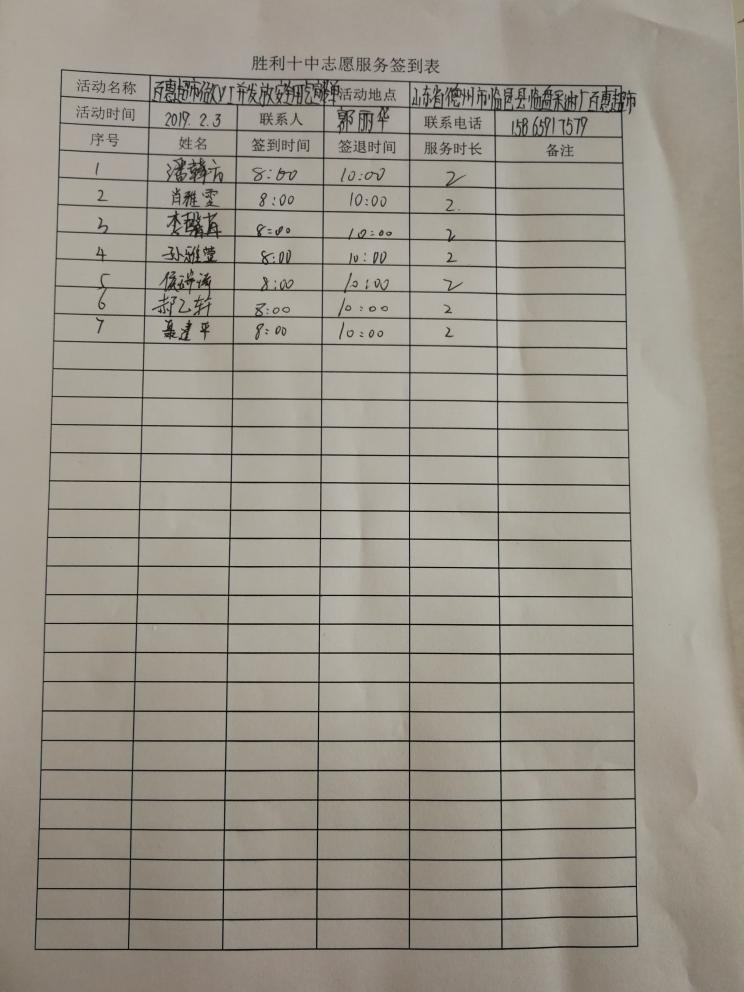 胜利十中志愿服务签到表
活动名称 百惠超市做义工并发放安全用气传单 活动地点 山东省德州市临邑县临盘采油厂百惠超市
活动时间 2019.2.3 联系人 郭丽华 联系电话 15865917579
序号 姓名 签到时间 签退时间 服务时长 备注
1 潘韩 8:00 10:00 2
2 肖雅雯 8:00 10:00 2
3 李 8:00 10:00 2
4 孙雅莹 8:00 10:00 2
5 8:00 10:00 2
6 郝乙轩 8:00 10:00 2
7 聂建平 8:00 10:00 2